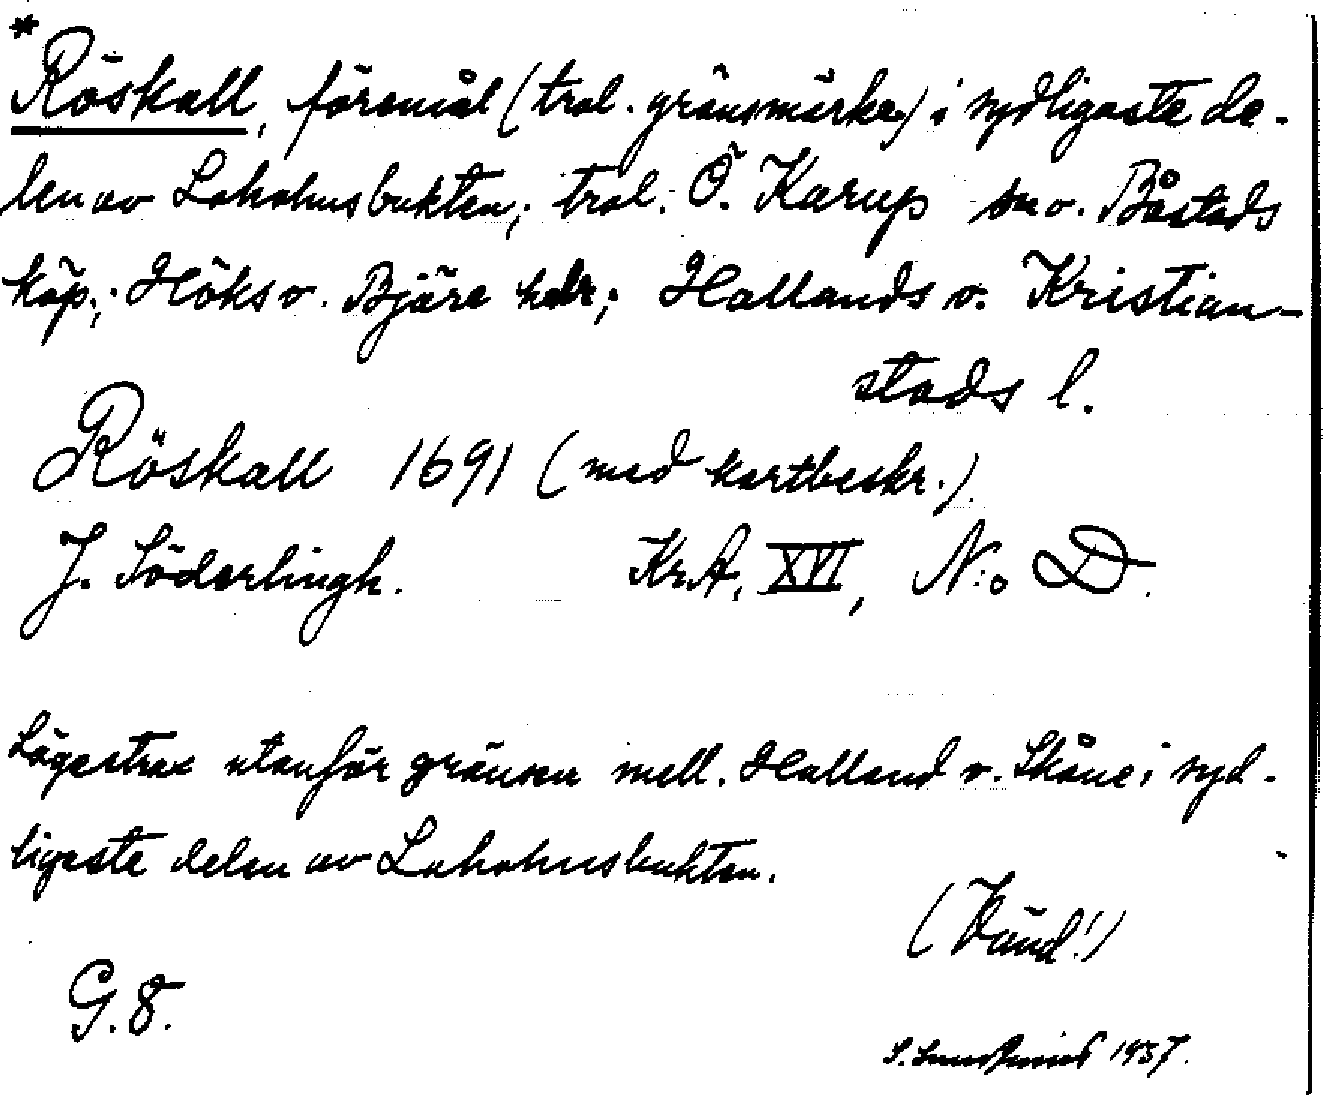 *
Röskall, föremål (trol. gränsmärke) i sydligaste de-
len av Laholmsbukten; trol. Ö. Karup sn o. Båstads
köp.; Höks o. Bjäre hdr; Hallands o. Kristian-
stads l.
Röskall 1691 (med kartbeskr.).
J. Söderlingh. KrA. XVI, N:o D.
Läge strax utanför gränsen mell. Halland o. Skåne i syd-
ligaste delen av Laholmsbukten.
(Vänd!)
G. 8.
S. 1937.